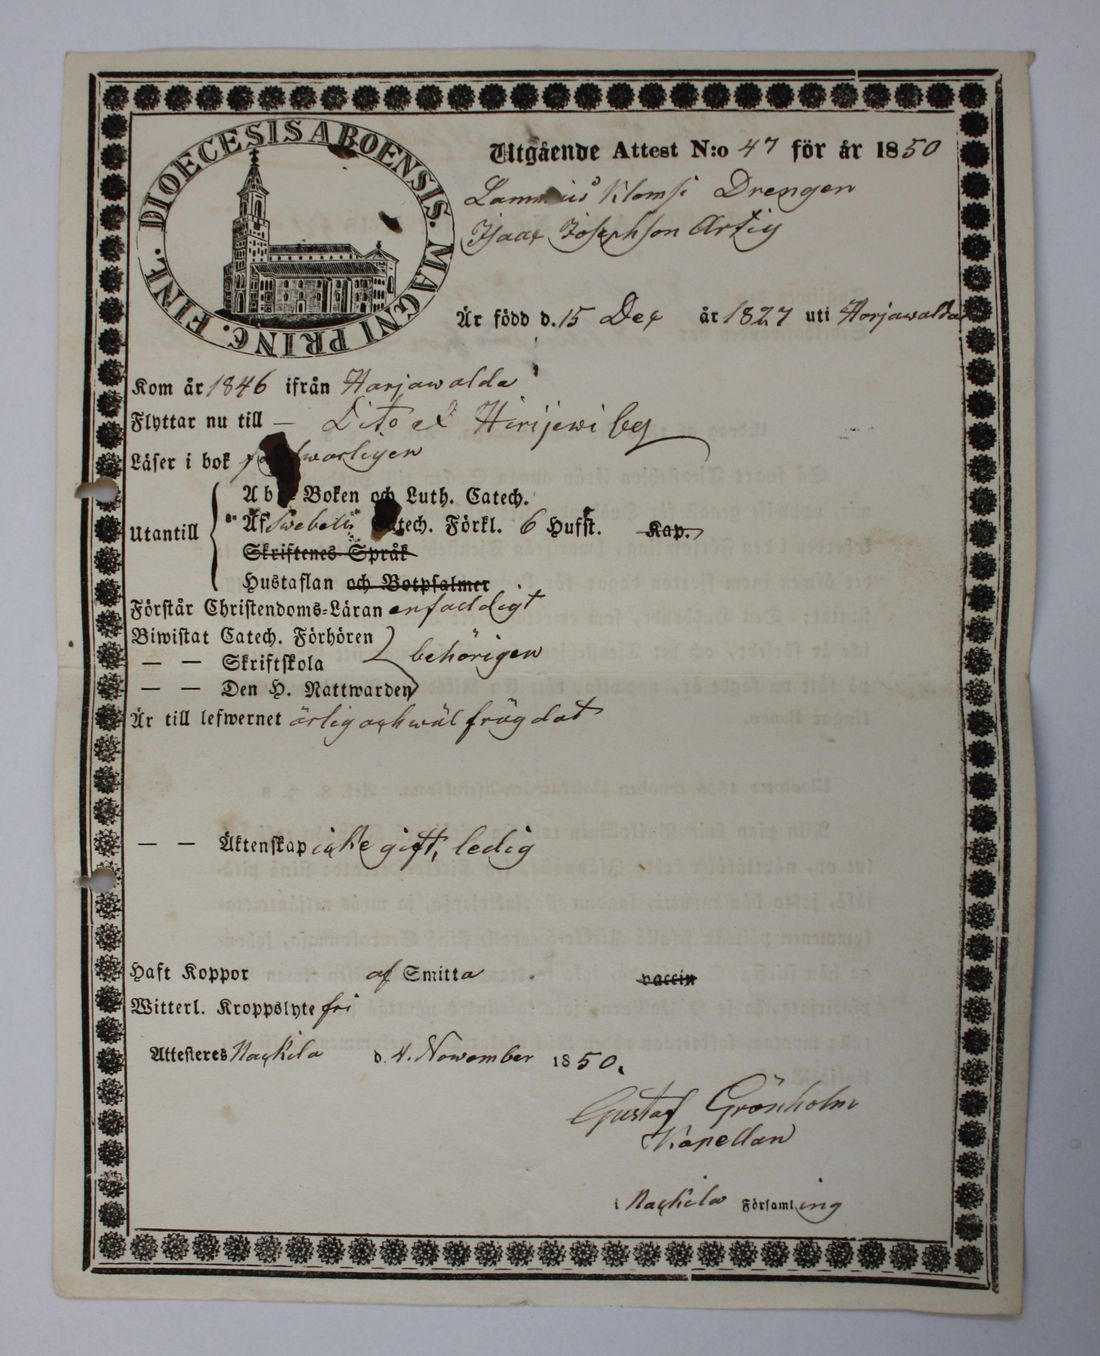 DIOECESIS ABOENSIS. MAGNI PRINC. FINL.
Utgående Attest N:o 47 för år 1850
Drengen
Isaac Josephson Artig
Är född d. 15 Dec år 1827 uti Harjawalda
Kom år 1846 ifrån Harjawalda
Flyttar nu till — Dito et
Läser i bok
Utantill
Ab Boken och Luth. Catech.
Af Swebelii Catech. Förkl. 6 Hufst. Kap.
Skriftenes Språk
Hustaflan och Botpsalmer
Förstår Christendoms-Läran enfaldigt
Biwistat Catech. Förhören
— — Skriftskola behörigen
— — Den H. Nattwarden
Är till lefwernet ärlig och wäl frägdat
— — Äktenskap icke gift, ledig
Haft Koppor af Smitta vaccin
Witterl. Kroppslyte fri
Attesteres Nackila d. 4. November 1850.
Gustaf Grönholm
Kapellan
i Nackila Församling